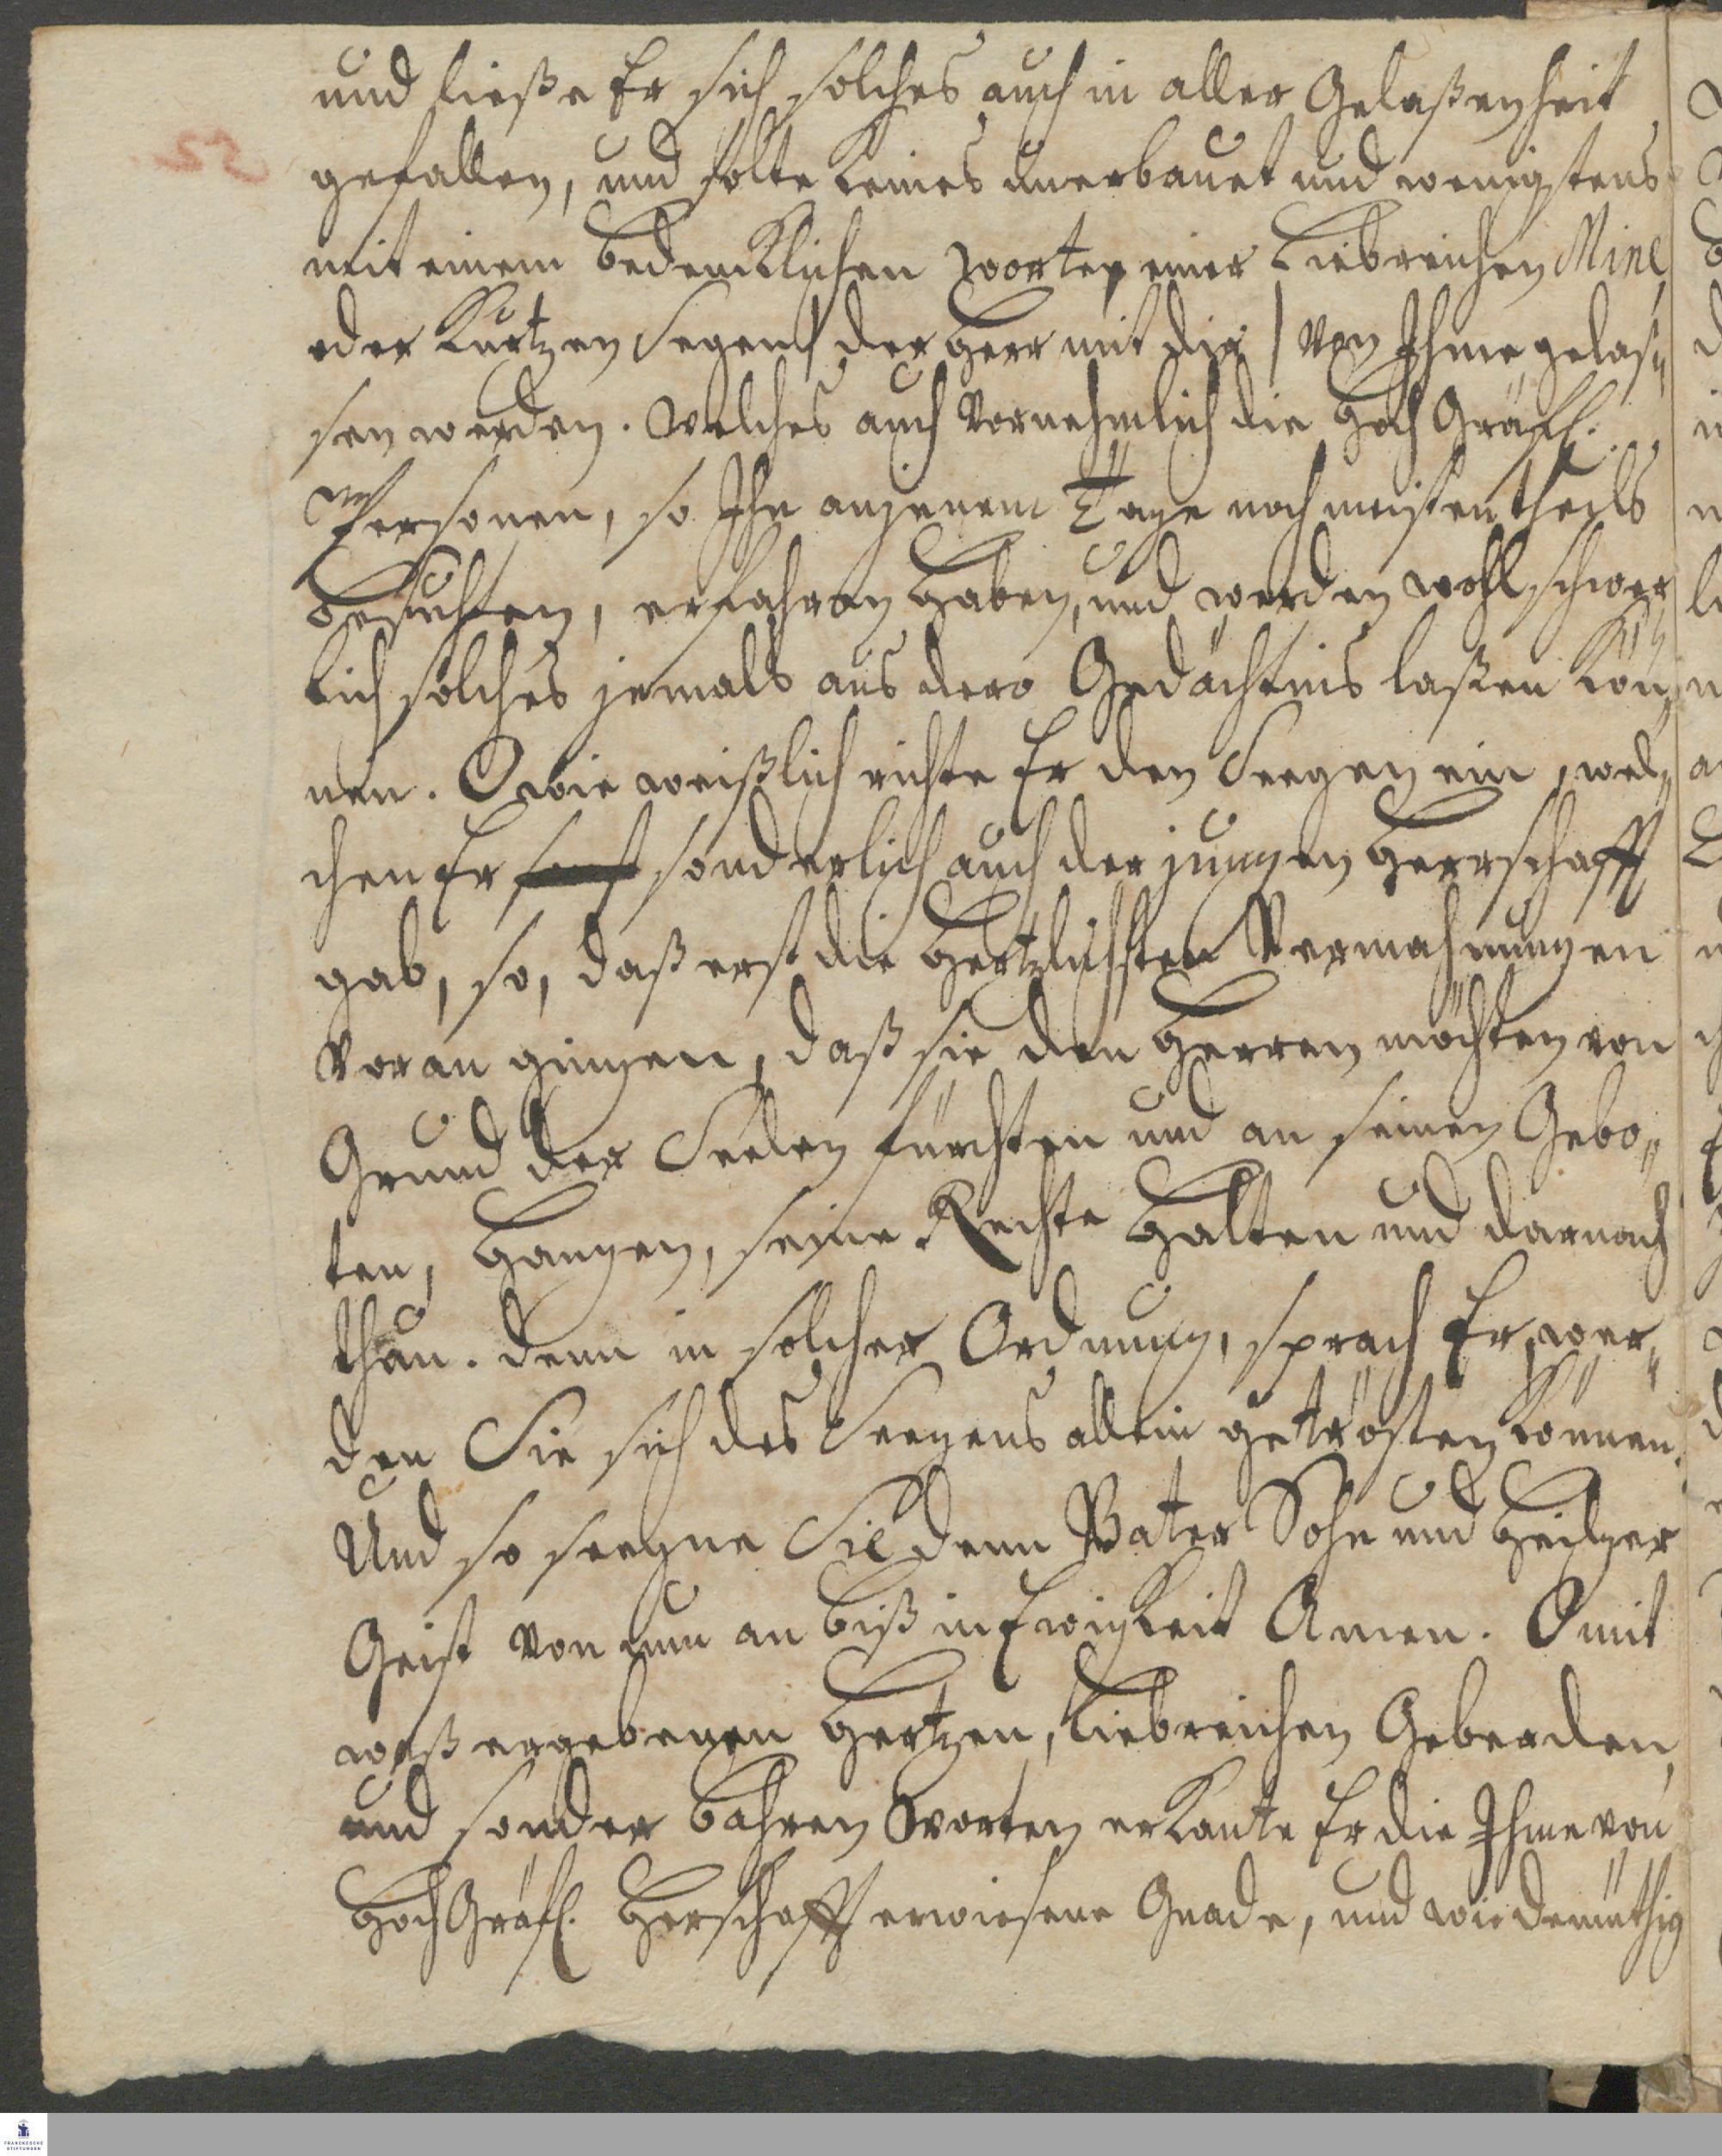 und ließe Er sich solches auch in aller Gelaßenheit
gefallen, und solte keines unerbauet und wenigstens
mit einem bedencklichen worte, einer Liebreichen Mine
oder kurtzen Segens/ der Herr mit dir / von Ihme gelas„
sen werden. welches auch vornehmlich die Hoch Gräfl.
Personen, so Ihn an jenem Tage noch meistentheils
besuchten, erfahren haben, und werden wohl schwer
lich solches jemals aus dero Gedächtnis laßen kön„
nen. O wie weißlich richte Er den Seegen ein, wel„
chen Er sonst sonderlich auch der jungen Herrschafft
gab, so, daß erst die Hertzlichsten Vermahnungen
voran gingen, daß sie den Herren möchten von
Grund der Seelen fürchten und an seinen Gebo„
ten, Hangen, seine Rechte Halten und darnach
thun. denn in solcher Ordnung, sprach Er, wer„
den Sie sich des Seegens allein getrösten können.
Und so seegne Sie denn Vater Sohn und Heilger
Geist von nun an biß in Ewigkeit Amen. O mit
waß ergebenen Hertzen, Liebreichen Geberden,
und sonder bahren Worten erkante Er die Ihme von
HochGräfl. Herschafft erwiesene Gnade, und wie demüthig
55
FRANCKESCHE
STIFTUNGEN